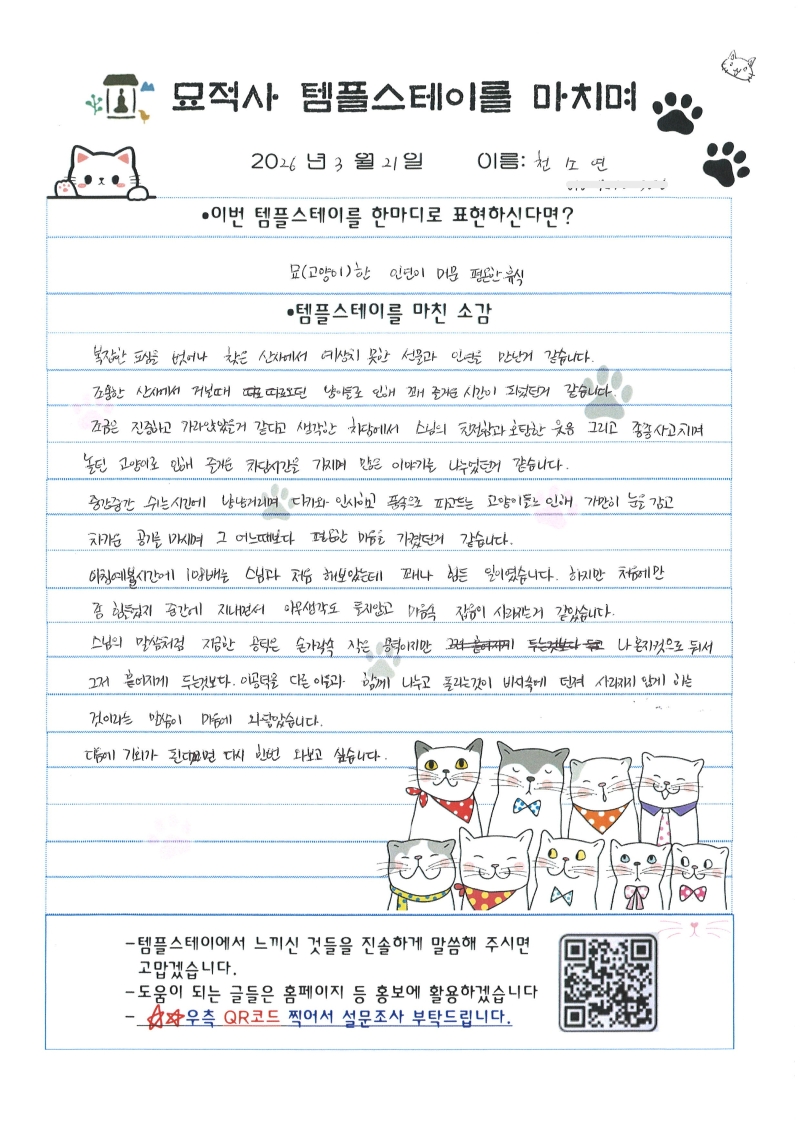 묘적사 템플스테이를 마치며
2026 년 3 월 21일 이름: 천소연
•이번 템플스테이를 한마디로 표현하신다면?
묘(고양이)한 인연이 머문 편온한 휴식
•템플스테이를 마친 소감
복잡한 도심을 벗어나 찾은 산사에서 예상치 못한 선물과 인연을 만난거 같습니다.
조용한 산사에서 거닐때 따라오던 냥이들로 인해 꽤 즐거운 시간이 되었던거 같습니다.
조금은 진중하고 가라앉았을거 같다고 생각한 차담에서 스님의 친절함과 호탕한 웃음 그리고 종종 사고치며
놀던 고양이로 인해 즐거운 차담시간을 가지며 많은 이야기를 나누었던거 같습니다.
중간중간 쉬는시간에 냥냥거리며 다가와 인사하고 품속으로 파고드는 고양이들로 인해 가만히 눈을 감고
차가운 공기를 마시며 그 어느때보다 편온한 마음을 가졌던거 같습니다.
아침예불시간에 108배는 스님과 처음 해보았는데 꽤나 힘든 일이였습니다. 하지만 처음에만
좀 힘들었지 중간에 지나면서 아무생각도 들지않고 마음속 잡음이 사라지는거 같았습니다.
스님의 말씀처럼 지금한 공덕은 손가락쓱 작은 공덕이지만 나 혼자것으로 둬서
그저 흩어지게 두는것보다. 이공덕을 다른 이들과 함께 나누고 돌리는것이 바닷속에 던져 사라지지 않게 하는
것이라는 말씀이 마음에 와닿았습니다.
다음에 기회가 된다면 다시 한번 와보고 싶습니다.
-템플스테이에서 느끼신 것들을 진솔하게 말씀해 주시면
고맙겠습니다.
-도움이 되는 글들은 홈페이지 등 홍보에 활용하겠습니다
- ☆☆우측 QR코드 찍어서 설문조사 부탁드립니다.